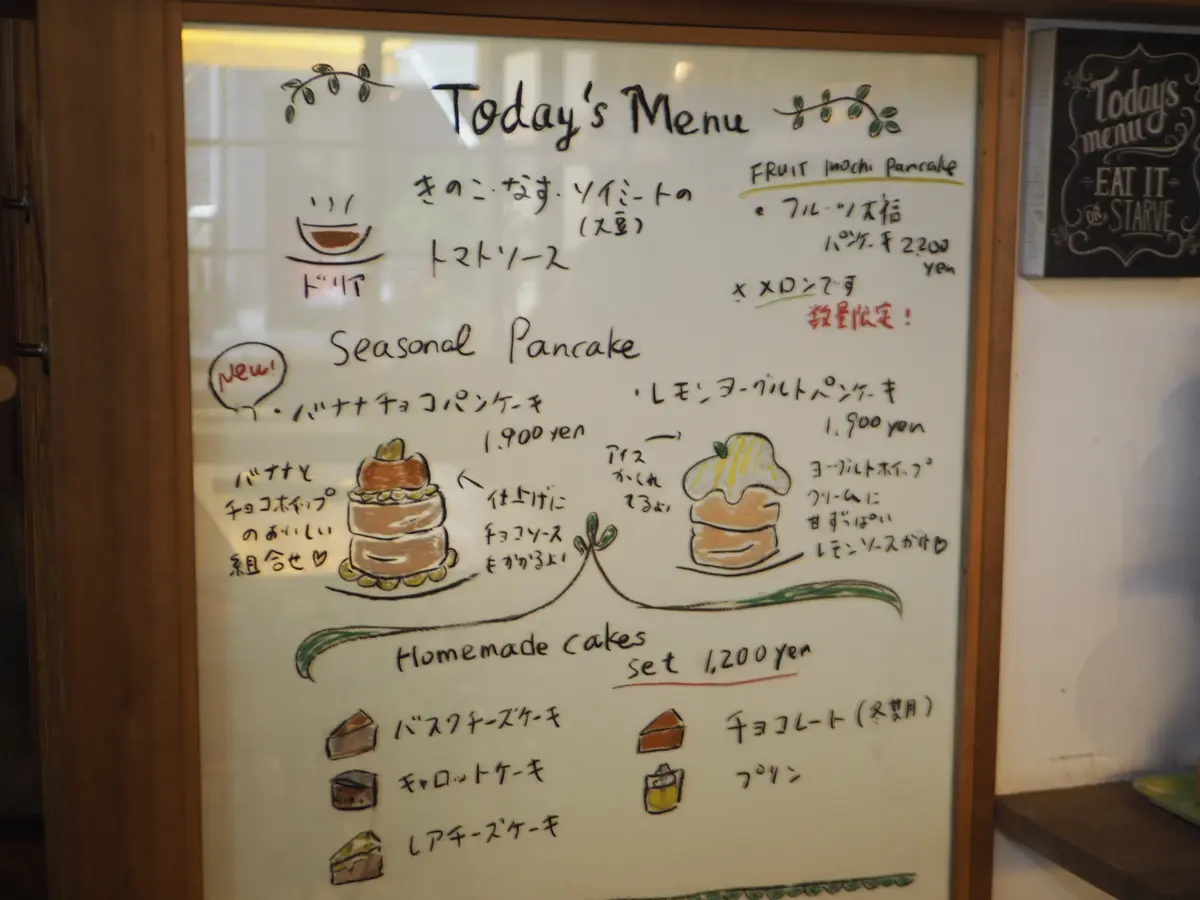 Today's Menu
きのこ・なす・ソイミートの
(大豆)
トマトソース
ドリア
FRUIT mochi Pancake
・フルーツ大福
パンケーキ 2,200
yen
× メロンです
数量限定!
Seasonal Pancake
New!
・バナナチョコパンケーキ
1,900 yen
バナナと
チョコホイップ
のおいしい
組合せ♡
仕上げに
チョコソース
もかかるよ!
・レモンヨーグルトパンケーキ
1,900 yen
アイス
かくれ
てるよ!
ヨーグルトホイップ
クリームに
甘ずっぱい
レモンソースがけ♡
Homemade cakes
set 1,200 yen
バスクチーズケーキ
キャロットケーキ
レアチーズケーキ
チョコレート(冬期)
プリン
Today's
menu
EAT IT
OR STARVE